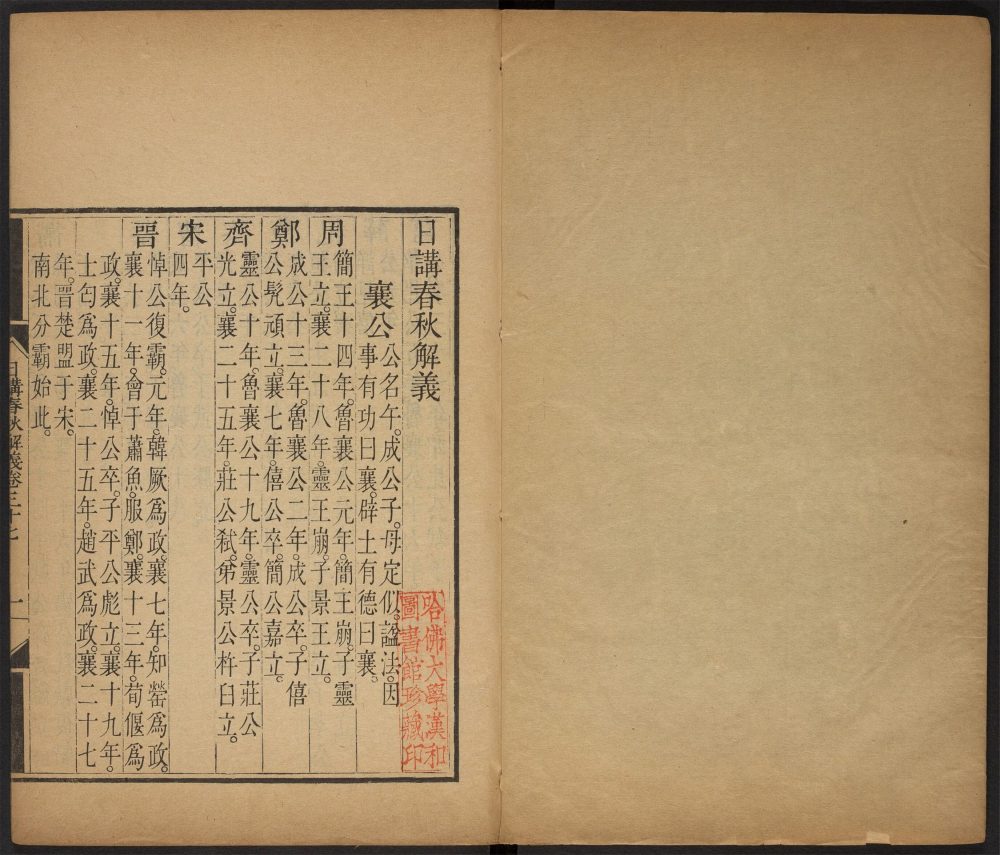 日講春秋解義
襄公
公名午。成公子。母定姒。諡法。因
事有功曰襄。辟土有德曰襄。
周
簡王十四年。魯襄公元年。簡王崩。子靈
王立。襄二十八年。靈王崩。子景王立。
鄭
成公十三年。魯襄公二年。成公卒。子僖
公髠頑立。襄七年。僖公卒。簡公嘉立。
齊
靈公十年。魯襄公十九年。靈公卒。子莊公
光立。襄二十五年。莊公弒。弟景公杵臼立。
宋
平公
四年。
晉
悼公復霸。元年。韓厥爲政。襄七年。知罃爲政。
襄十一年。會于蕭魚。服鄭。襄十三年。荀偃爲
政。襄十五年。悼公卒。子平公彪立。襄十九年。
士匄爲政。襄二十五年。趙武爲政。襄二十七
年。晉楚盟于宋。
南北分霸始此。
日講春秋解義卷三十七
一
哈佛大學漢和
圖書館珍藏印